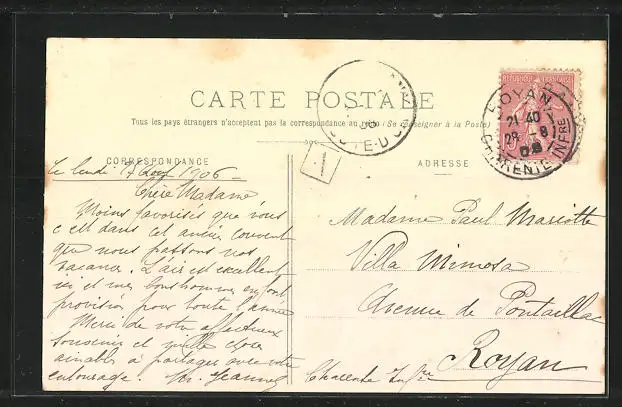 CARTE POSTALE
Tous les pays étrangers n'acceptent pas la correspondance au (Se renseigner à la Poste)
CORRESPONDANCE
ADRESSE
RÉPUBLIQUE FRANÇAISE
ROYAN
21 40
28 - 8
06
CHARENTE INFRE
06
CÔTE-D'OR
1
Le lundi 1906 -
Chère Madame
Moins favorisés que vous
c'est dans cet ancien couvent
que nous passons nos
vacances. L'air est excellent
ici et mes bonshommes en font
provision pour toute l'année
Merci de votre affectueux
souvenir et mille choses
aimables à partager avec votre
entourage.
Madame Paul Mariotte
Villa Mimosa
Avenue de Pontaillac
Royan
Charente Infre